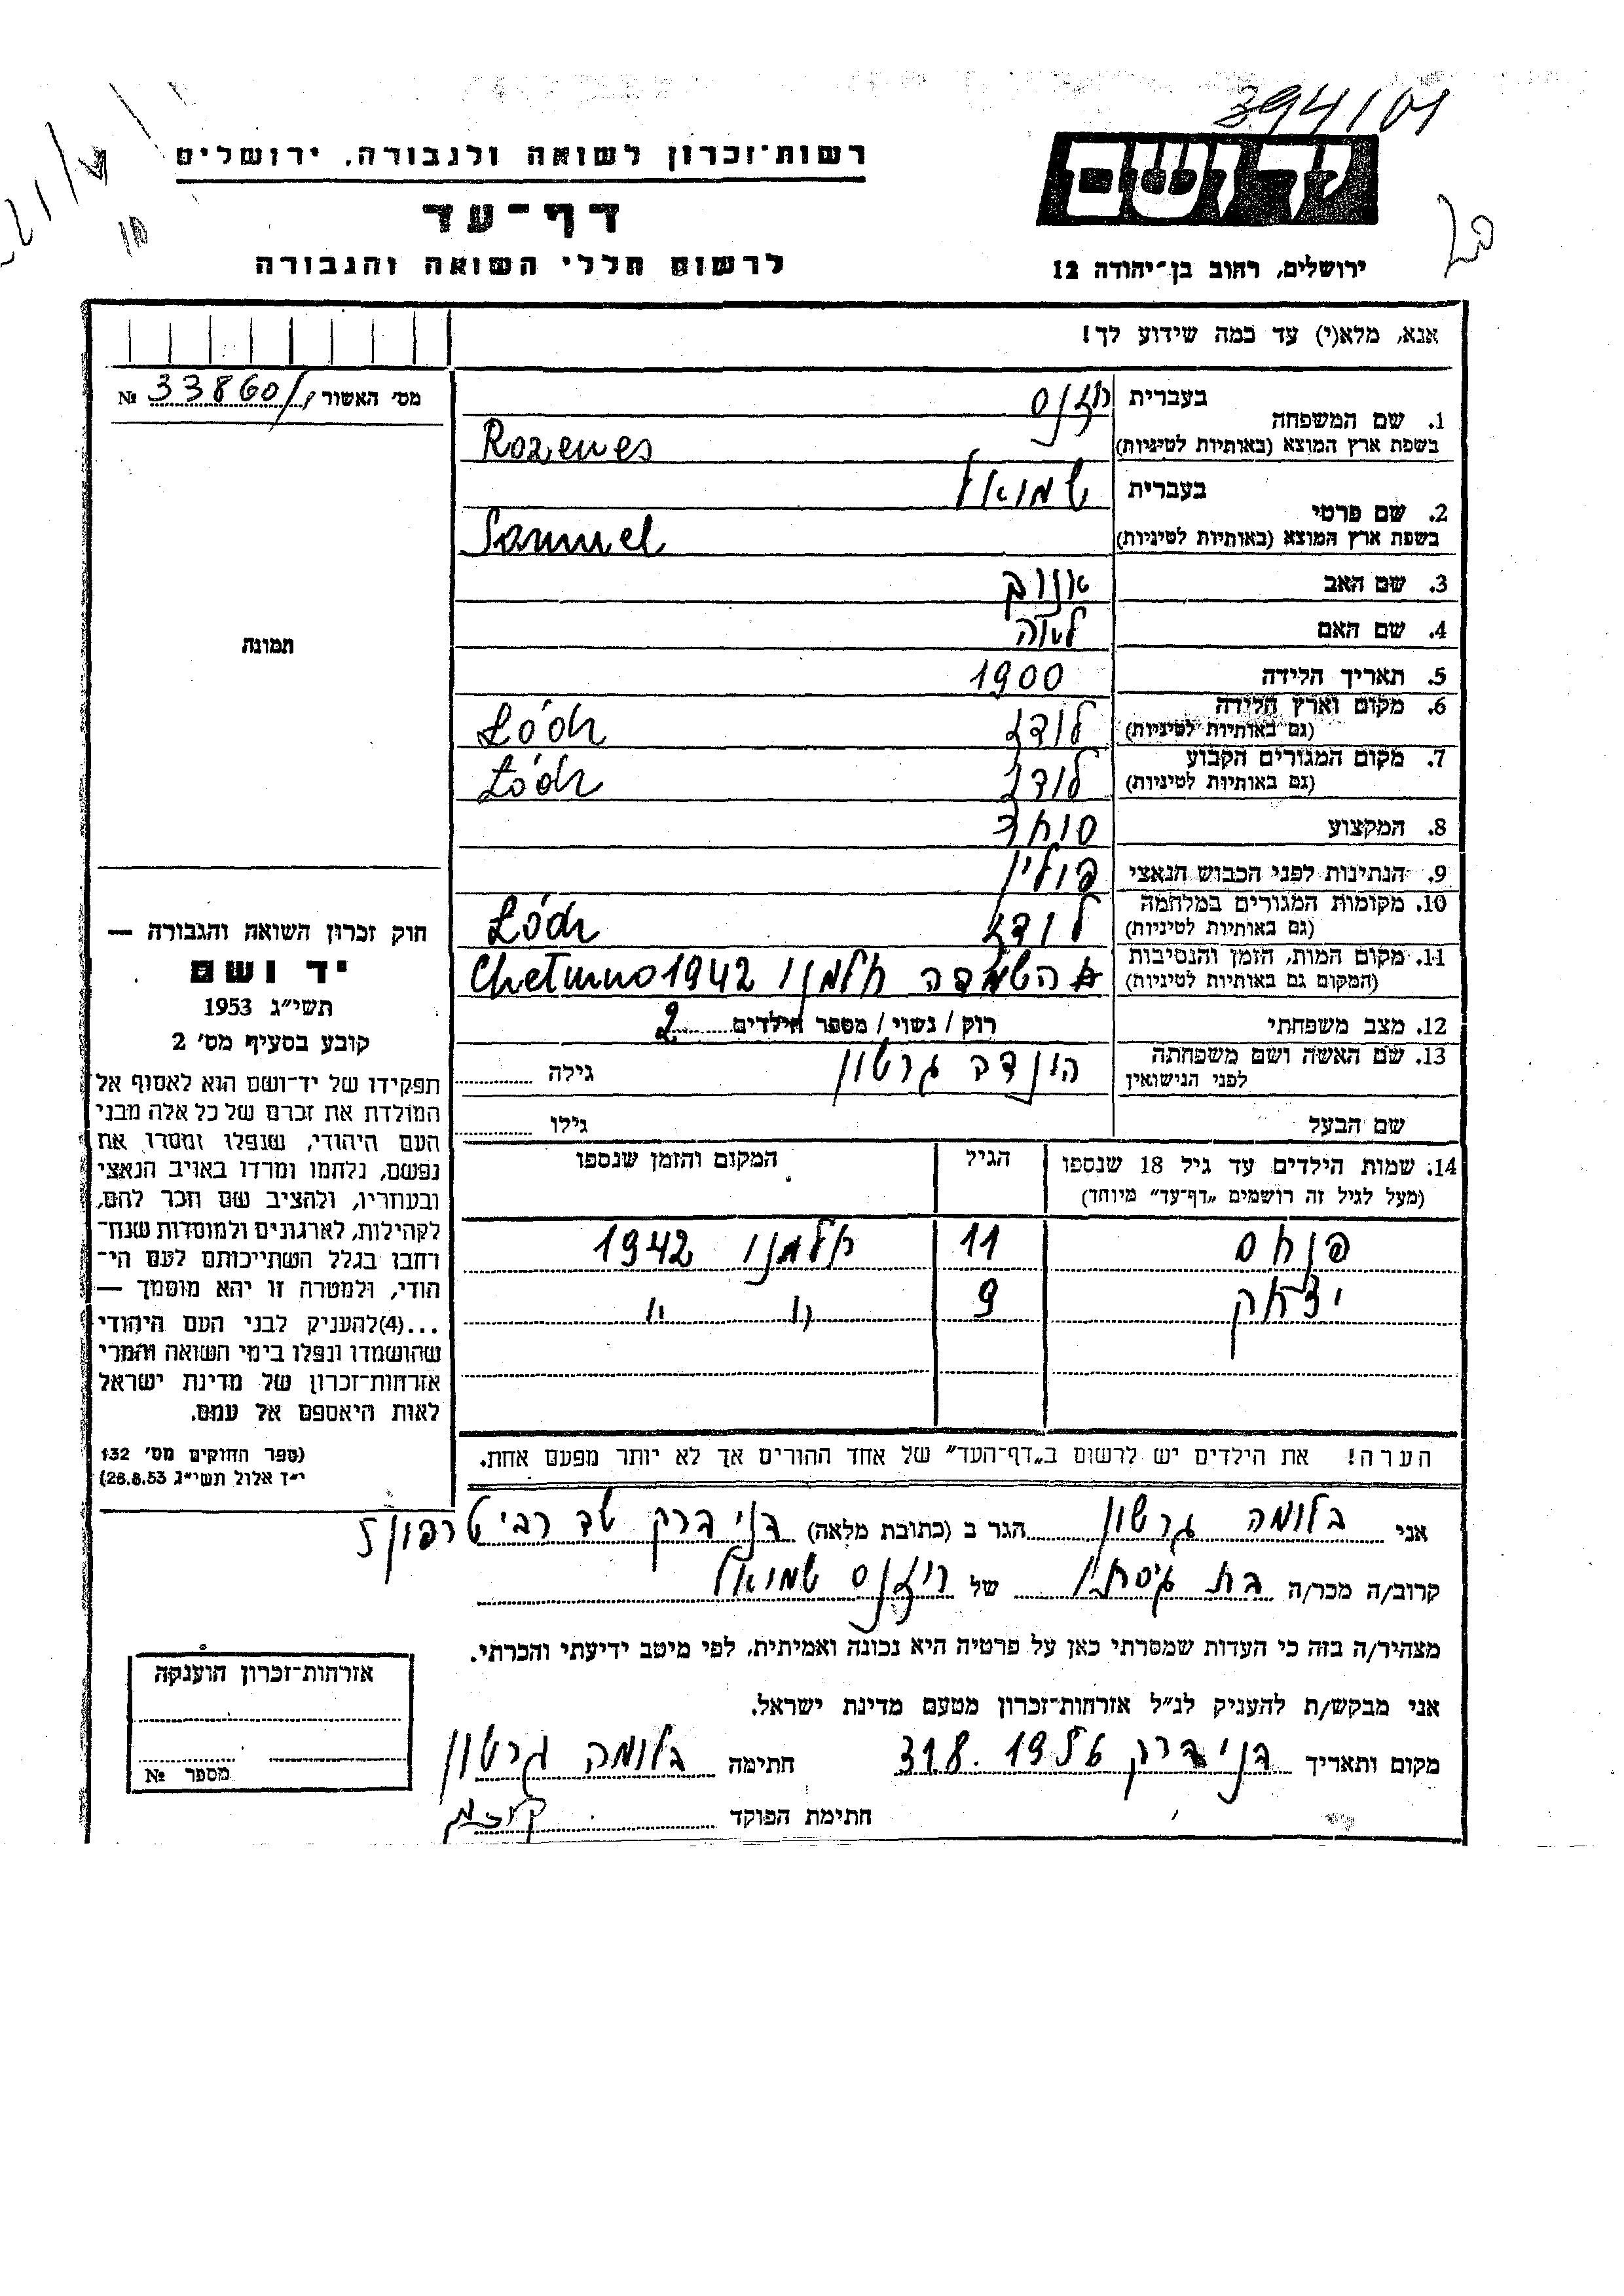 394/01
רשות־זכרון לשואה ולגבורה, ירושלים
יד ושם
דף־עד
ירושלים, רחוב בן־יהודה 12
לרשום חללי השואה והגבורה
אנא, מלא(י) עד כמה שידוע לך!
מס׳ האשור № 33860/
1. שם המשפחה בעברית
בשפת ארץ המוצא (באותיות לטיניות) Rozenes
2. שם פרטי בעברית שמואל
בשפת ארץ המוצא (באותיות לטיניות) Samuel
3. שם האב
4. שם האם
תמונה
5. תאריך הלידה 1900
6. מקום וארץ הלידה לודז Łódz
(גם באותיות לטיניות)
7. מקום המגורים הקבוע לודז Łódz
(גם באותיות לטיניות)
8. המקצוע סוחר
9. הנתינות לפני הכבוש הנאצי פולין
10. מקומות המגורים במלחמה לודז Łódz
(גם באותיות לטיניות)
11. מקום המות, הזמן והנסיבות השמדה חלמנו Chełmno 1942
(המקום גם באותיות לטיניות)
12. מצב משפחתי רוק / נשוי / מספר הילדים 2
13. שם האשה ושם משפחתה גרשון גילה
לפני הנישואין
שם הבעל גילו
14. שמות הילדים עד גיל 18 שנספו הגיל המקום והזמן שנספו
(מעל לגיל זה רושמים „דף־עד״ מיוחד)
פנחס 11 חלמנו 1942
יצחק 9 ״ ״
הערה! את הילדים יש לרשום ב„דף־העד״ של אחד ההורים אך לא יותר מפעם אחת.
חוק זכרון השואה והגבורה —
יד ושם
תשי״ג 1953
קובע בסעיף מס׳ 2
תפקידו של יד־ושם הוא לאסוף אל
המולדת את זכרם של כל אלה מבני
העם היהודי, שנפלו ומסרו את
נפשם, נלחמו ומרדו באויב הנאצי
ובעוזריו, ולהציב שם וזכר להם,
לקהילות, לארגונים ולמוסדות שנח־
רחבו בגלל השתייכותם לעם הי־
הודי, ולמטרה זו יהא מוסמך —
...(4)להעניק לבני העם היהודי
שהושמדו ונפלו בימי השואה והמרי
אזרחות־זכרון של מדינת ישראל
לאות היאספם אל עמם.
(ספר החוקים מס׳ 132
י״ד אלול תשי״ג 26.8.53)
אני בלומה גרשון הגר ב (כתובת מלאה) בני ברק רבי טרפון 5
קרוב/ה מכר/ה בת גיסתו של שמואל
מצהיר/ה בזה כי העדות שמסרתי כאן על פרטיה היא נכונה ואמיתית, לפי מיטב ידיעתי והכרתי.
אני מבקש/ת להעניק לנ״ל אזרחות־זכרון מטעם מדינת ישראל.
מקום ותאריך בני ברק 31.8. חתימה בלומה גרשון
חתימת הפוקד
אזרחות־זכרון הוענקה
מספר №